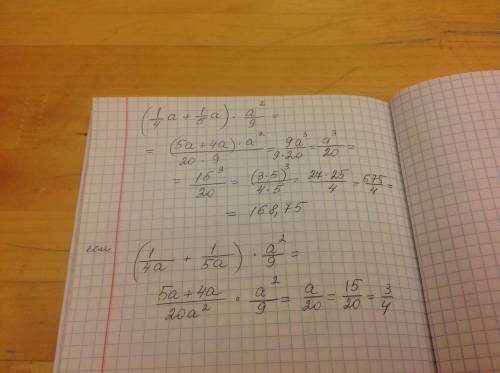 (1/4 a + 1/5 a) · a²/9 =
= (5a+4a)·a²/20·9 = 9a³/9·20 = a³/20 =
= 15³/20 = (3·5)³/4·5 = 27·25/4 = 675/4 =
= 168,75
если (1/4a + 1/5a) · a²/9 =
5a+4a/20a² · a²/9 = a/20 = 15/20 = 3/4